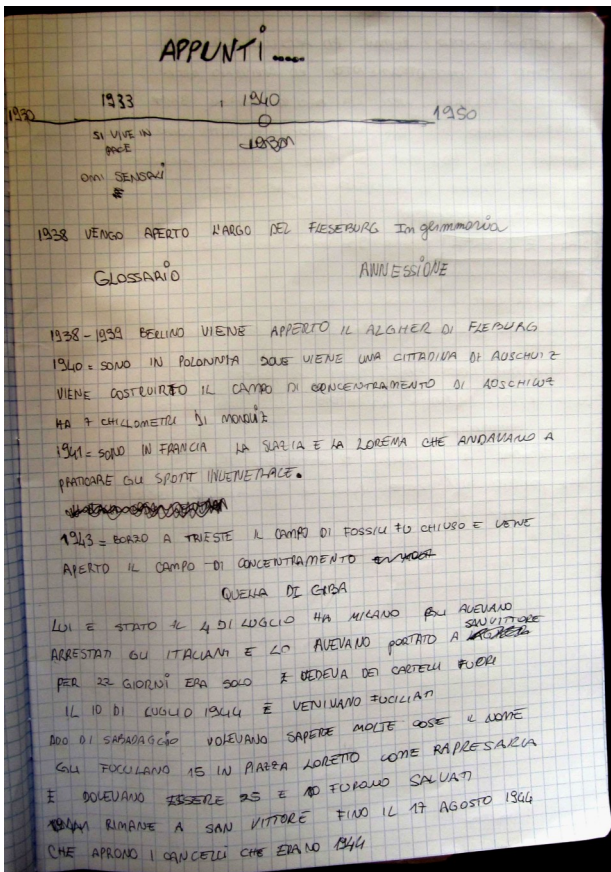 APPUNTI.....
1933 1940
1930 1950
SI VIVE IN
PACE
OMI SENSALI
1938 VENGO APERTO L'ARGO DEL FLESEBURG In germmaria
GLOSSARIO ANNESSIONE
1938-1939 BERLINO VIENE APPERTO IL ALGHER DI FLEBURG
1940 = SONO IN POLONNIA DOVE VIENE UNA CITTADINA DI AUSCHUIZ
VIENE COSTRUIRTO IL CAMPO DI CONCENTRAMENTO DI AOSCHIWZ
HA 7 CHILOMETRI DI
1941 = SONO IN FRANCIA LA SLAZIA E LA LOREMA CHE ANDAVANO A
PRATICARE GLI SPORT INVENERLACE.
1943 = BORZO A TRIESTE IL CAMPO DI FOSSILI FU CHIUSO E VENE
APERTO IL CAMPO DI CONCENTRAMENTO
QUELLA DI GIBA
LUI E STATO IL 4 DI LUGLIO HA MILANO AVEVANO
SAN VITTORE
ARRESTATI GLI ITALIANI E LO AVEVANO PORTATO A
PER 22 GIORNI ERA SOLO E VEDEVA DEI CARTELLI FUORI
IL 10 DI LUGLIO 1944 E VENIVANO FUCILIATI
ADO DI SABADAGGIO VOLEVANO SAPERE MOLTE COSE IL NOME
GLI FUCULANO 15 IN PIAZZA LORETTO COME RAPRESARIA
E DOLEVANO ESSERE 25 E 10 FURONO SALVATI
RIMANE A SAN VITTORE FINO IL 17 AGOSTO 1944
CHE APRONO I CANCELLI CHE ERANO 1944